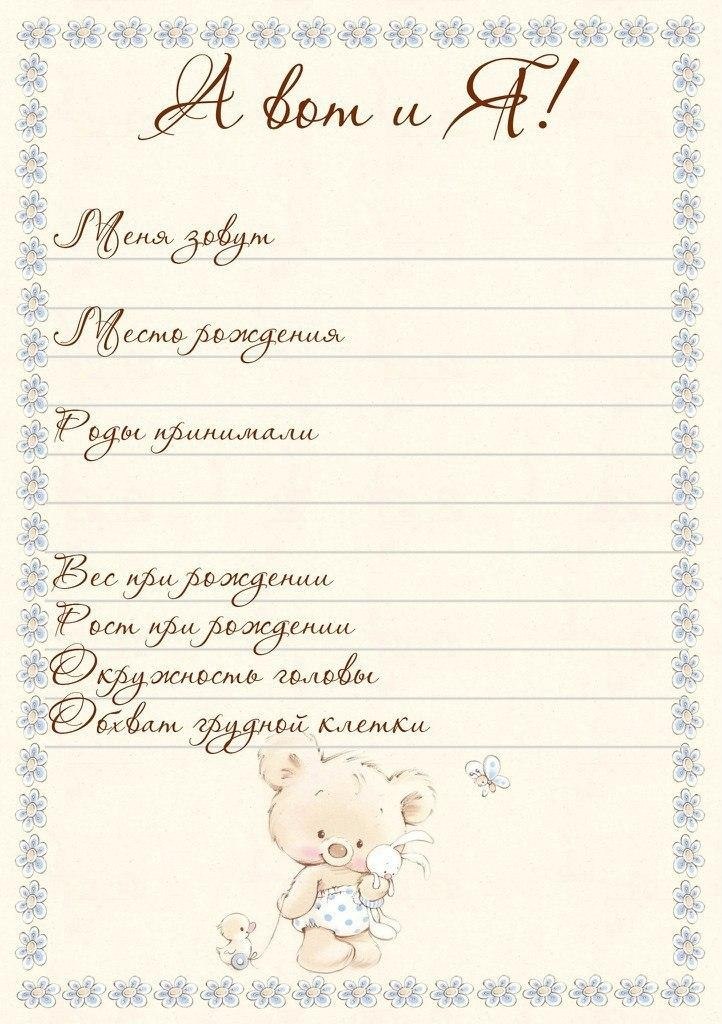 А вот и Я!
Меня зовут
Место рождения
Роды принимали
Вес при рождении
Рост при рождении
Окружность головы
Обхват грудной клетки